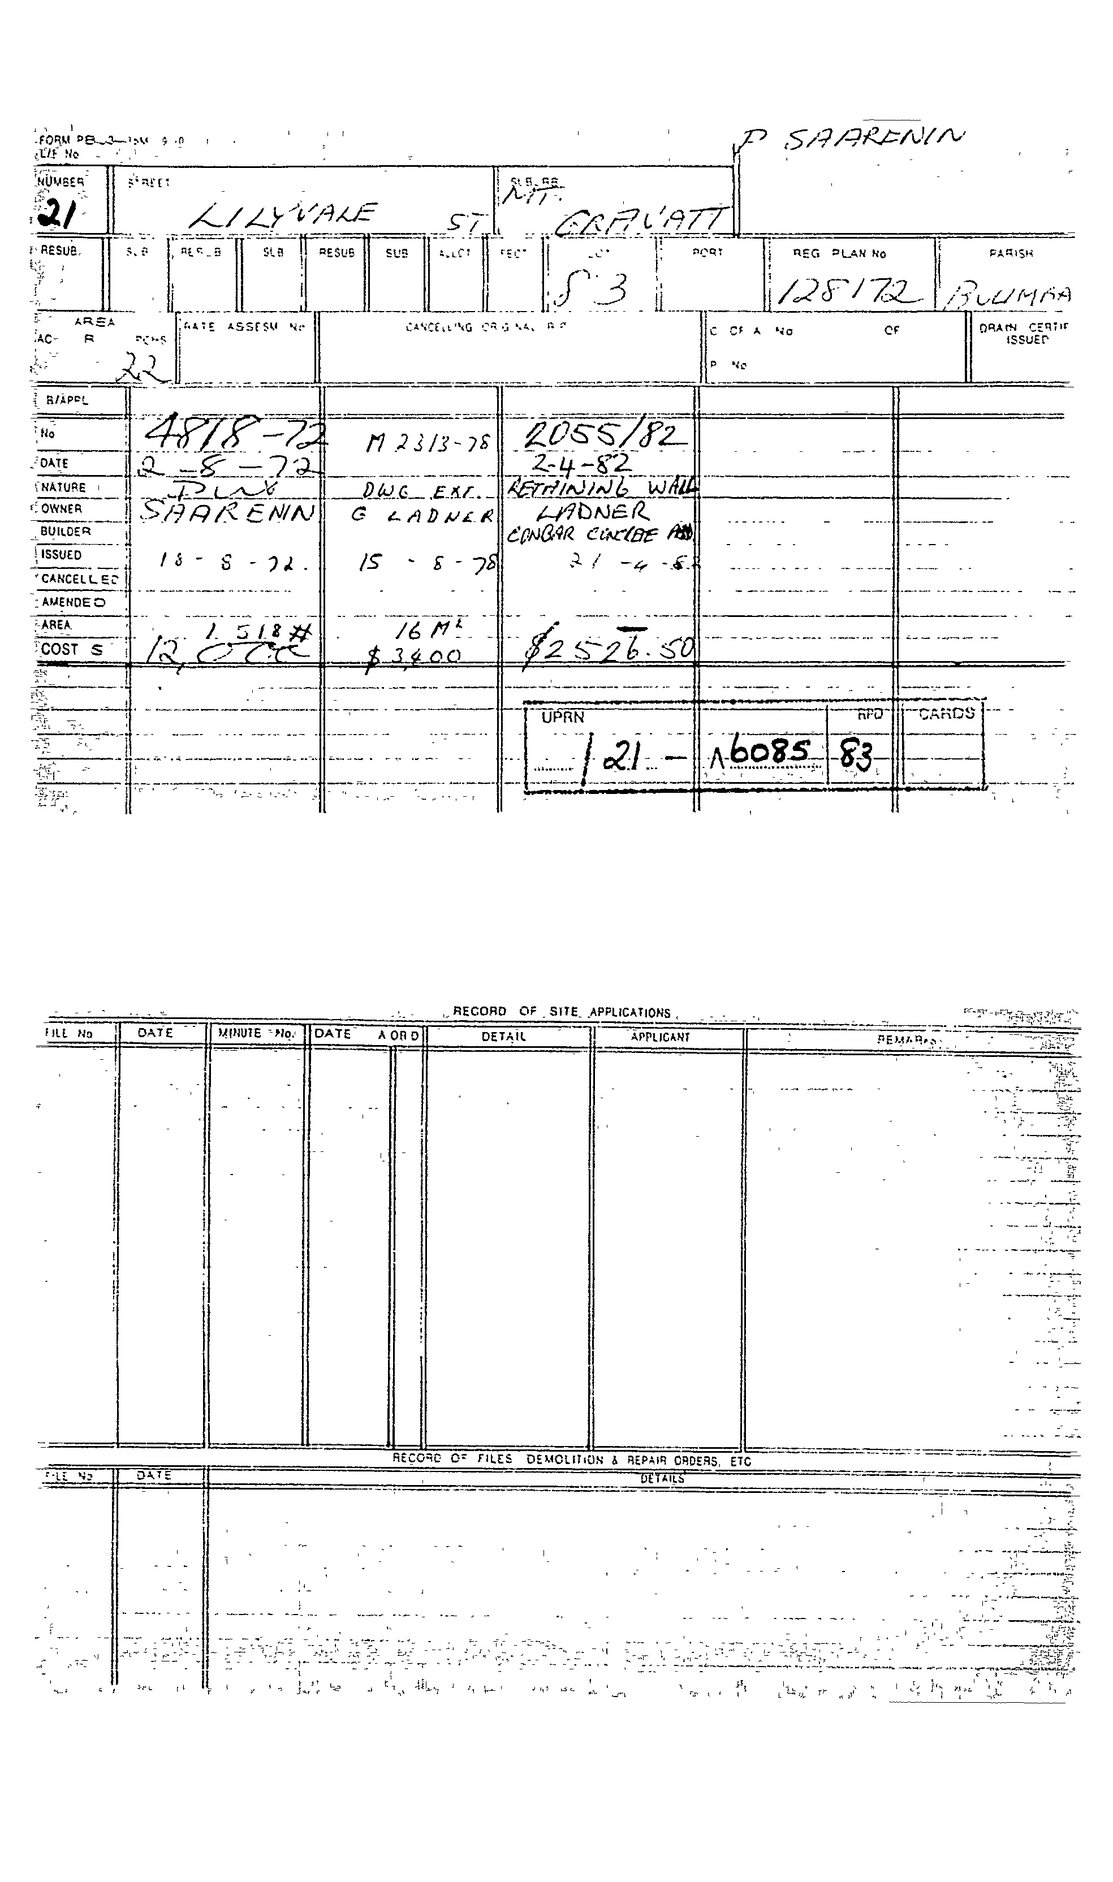 P SAARENIN
FORM
L/F No
NUMBER STREET
21 LILYVALE ST MT. GRAVATT
RESUB. SUB RESUB SUB RESUB SUB ALLOT SECT LOT PORT REG PLAN No PARISH
83 128172
AREA RATE ASSESM No CANCELLING ORIGINAL R P C OF A No OF DRAIN CERTIF ISSUED
AC- R PCHS P No
22
B/APPL
No 4818-72 M 2313-78 2055/82
DATE 2-8-72 2-4-82
NATURE DWG EXT. RETAINING WALL
OWNER SAARENIN G LADNER LADNER
BUILDER
ISSUED 18-8-72. 15-8-78 21-4-82
CANCELLED
AMENDED
AREA 1518# 16 M²
COST $ 12,000 $3,400 $2526.50
UPRN RPD CARDS
121 - 6085 83
RECORD OF SITE APPLICATIONS
FILE No DATE MINUTE No. DATE A OR D DETAIL APPLICANT REMARKS
RECORD OF FILES DEMOLITION & REPAIR ORDERS, ETC
FILE No DATE DETAILS